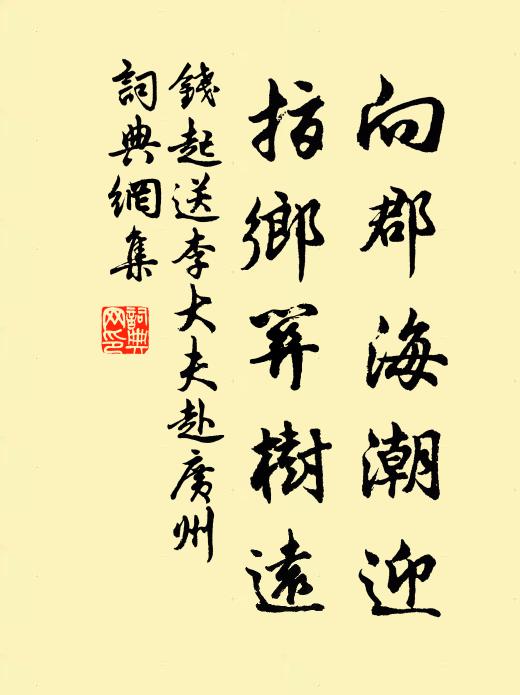 向郡海潮迎
指鄉關樹遠
錢起送李大夫赴廣州
詞典網集
詞典
网印